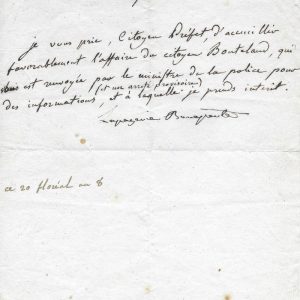 je vous prie, Citoyen Préfet d'accueillir
favorablement l'affaire du citoyen
est renvoyée par le ministre de la police pour
(et un arrêté provisoire)
des informations, et à laquelle je prends intérêt.
Bonaparte
ce 20 floréal an 8